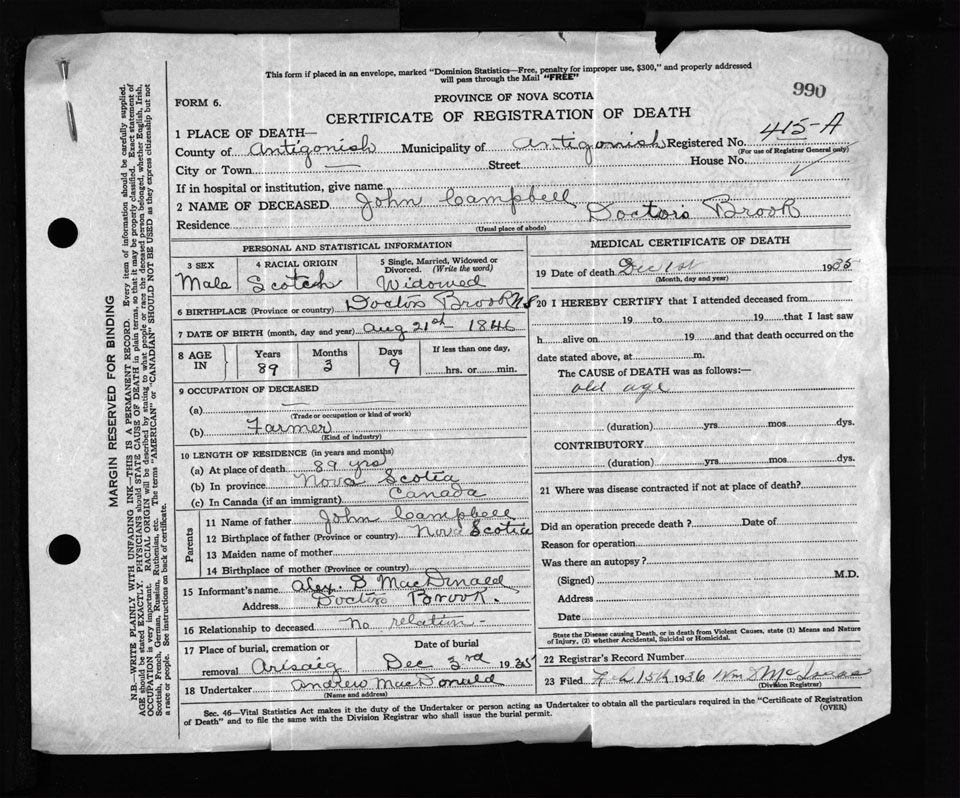 This form if placed in an envelope, marked "Dominion Statistics—Free, penalty for improper use, $300," and properly addressed
will pass through the Mail "FREE"
990
FORM 6.
PROVINCE OF NOVA SCOTIA
CERTIFICATE OF REGISTRATION OF DEATH
415-A
1 PLACE OF DEATH—
County of Antigonish Municipality of Antigonish Registered No.
(For use of Registrar General only)
City or Town — Street House No.
If in hospital or institution, give name
2 NAME OF DECEASED John Campbell
Residence Doctors Brook
(Usual place of abode)
PERSONAL AND STATISTICAL INFORMATION
3 SEX 4 RACIAL ORIGIN 5 Single, Married, Widowed or Divorced. (Write the word)
Male Scotch Widowed
6 BIRTHPLACE (Province or country) Doctors Brook N S
7 DATE OF BIRTH (month, day and year) Aug 21st - 1846
8 AGE IN Years Months Days If less than one day,
89 3 9 hrs. or min.
9 OCCUPATION OF DECEASED
(a) —
(Trade or occupation or kind of work)
(b) Farmer
(Kind of industry)
10 LENGTH OF RESIDENCE (in years and months)
(a) At place of death 89 yrs
(b) In province Nova Scotia
(c) In Canada (if an immigrant) Canada
Parents
11 Name of father John Campbell
12 Birthplace of father (Province or country) Nova Scotia
13 Maiden name of mother
14 Birthplace of mother (Province or country)
15 Informant's name Alex. D MacDonald
Address Doctors Brook.
16 Relationship to deceased No relation -
17 Place of burial, cremation or removal Arisaig
Date of burial
Dec 3rd 1935
18 Undertaker Andrew MacDonald
(Name and address)
MEDICAL CERTIFICATE OF DEATH
19 Date of death Dec 1st 1935
(Month, day and year)
20 I HEREBY CERTIFY that I attended deceased from
19 to 19 that I last saw
h alive on 19 and that death occurred on the
date stated above, at m.
The CAUSE of DEATH was as follows:—
old age
(duration) yrs. mos. dys.
CONTRIBUTORY
(duration) yrs. mos. dys.
21 Where was disease contracted if not at place of death?
Did an operation precede death ? Date of
Reason for operation
Was there an autopsy?
(Signed) M.D.
Address
Date
State the Disease causing Death, or in death from Violent Causes, state (1) Means and Nature
of Injury, (2) whether Accidental, Suicidal or Homicidal.
22 Registrar's Record Number
23 Filed Feb 15th 1936 Wm
(Division Registrar)
Sec. 46—Vital Statistics Act makes it the duty of the Undertaker or person acting as Undertaker to obtain all the particulars required in the "Certificate of Registration
of Death" and to file the same with the Division Registrar who shall issue the burial permit.
(OVER)
MARGIN RESERVED FOR BINDING
N.B.—WRITE PLAINLY WITH UNFADING INK—THIS IS A PERMANENT RECORD. Every item of information should be carefully supplied.
AGE should be stated EXACTLY. PHYSICIANS should STATE CAUSE OF DEATH in plain terms, so that it may be properly classified. Exact statement of
OCCUPATION is very important. RACIAL ORIGIN will be described by stating to what people or race the deceased person belonged, whether English, Irish,
Scottish, French, German, Russian, Ruthenian, etc. The terms "AMERICAN" or "CANADIAN" SHOULD NOT BE USED as they express citizenship but not
a race or people. See instructions on back of certificate.